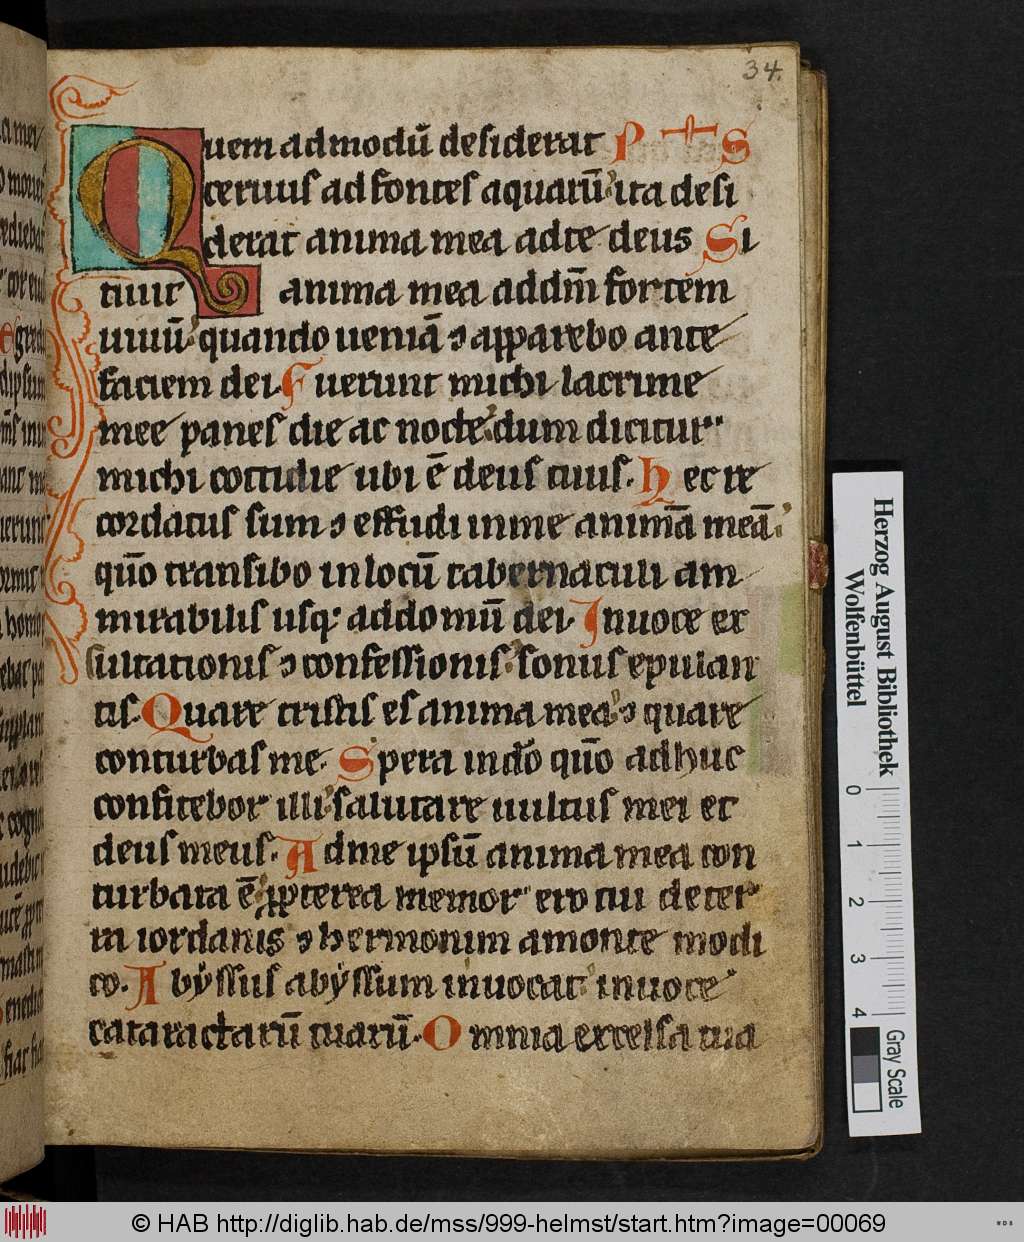 34.
Quem admodū desiderat P S
ceruus ad fontes aquarū ita desi
derat anima mea ad te deus Si
tiuit anima mea ad dm̄ fortem
uiuū quando ueniā ⁊ apparebo ante
faciem dei. Fuerunt michi lacrime
mee panes die ac nocte dum dicitur
michi cottidie ubi ē deus tuus. Hec re
cordatus sum ⁊ effudi in me animā meā
qūo transibo in locū tabernaculi am
mirabilis usq; ad domū dei. Inuoce ex
sultationis ⁊ confessionis sonus epulan
tis. Quare tristis es anima mea ⁊ quare
conturbas me. Spera in dō qūo adhuc
confitebor illi salutare uultus mei et
deus meus. Ad me ipsū anima mea con
turbata ē ꝓpterea memor ero tui de ter
ra iordanis ⁊ hermonim a monte modi
co. Abẏssus abẏssum inuocat inuoce
cataractarū tuarū. Omnia excelsa tua
Herzog August Bibliothek
Wolfenbüttel
0 1 2 3 4
Gray Scale
© HAB http://diglib.hab.de/mss/999-helmst/start.htm?image=00069